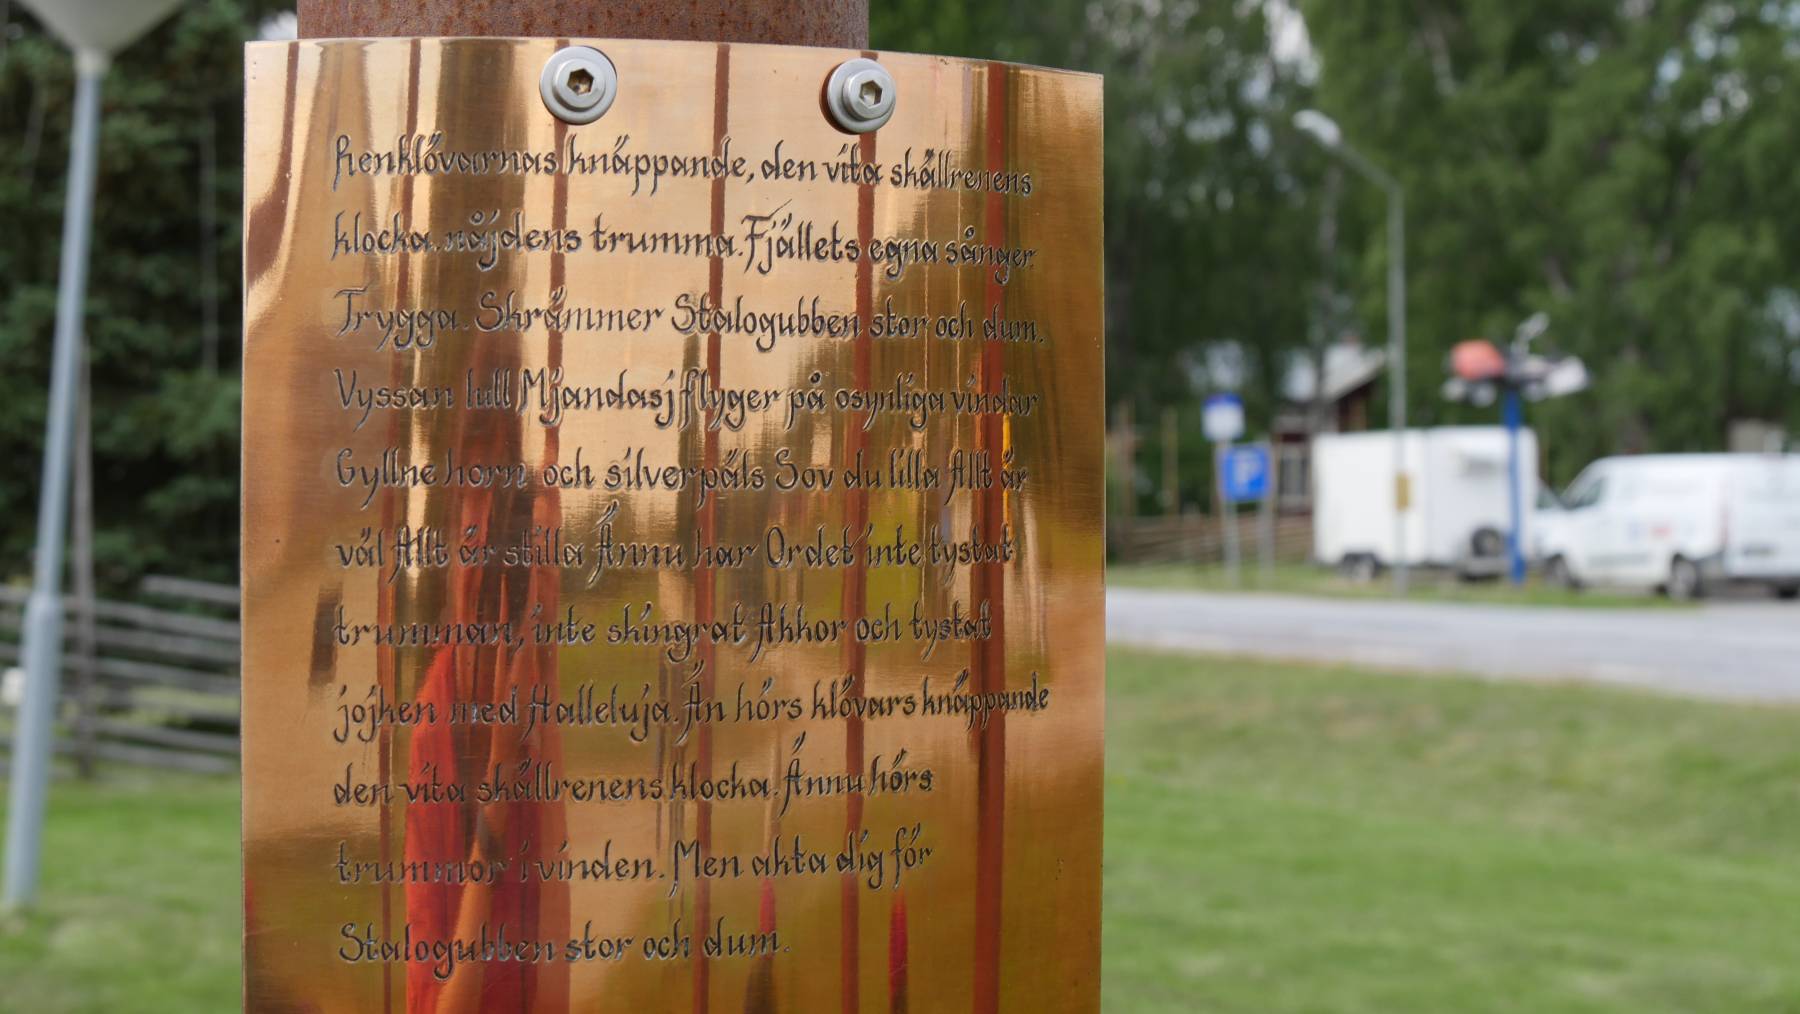 Renklövarnas knäppande, den vita skällrenens
klocka. nåjdens trumma. Fjällets egna sånger.
Trygga. Skrämmer Stalogubben stor och dum.
Vyssan lull Mjandasj flyger på osynliga vindar
Gyllne horn och silverpäls Sov du lilla Allt är
väl Allt är stilla Ännu har Ordet inte tystat
trumman, inte skingrat Ahkor och tystat
jojken med Halleluja. Än hörs klövars knäppande
den vita skällrenens klocka. Ännu hörs
trummor i vinden. Men akta dig för
Stalogubben stor och dum.
P